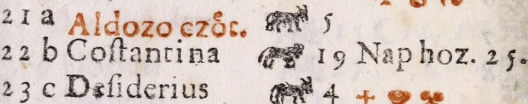 21 a Aldozo czöt. 5
22 b Coſtantina 19 Naphoz. 25.
23 c Deſiderius 4